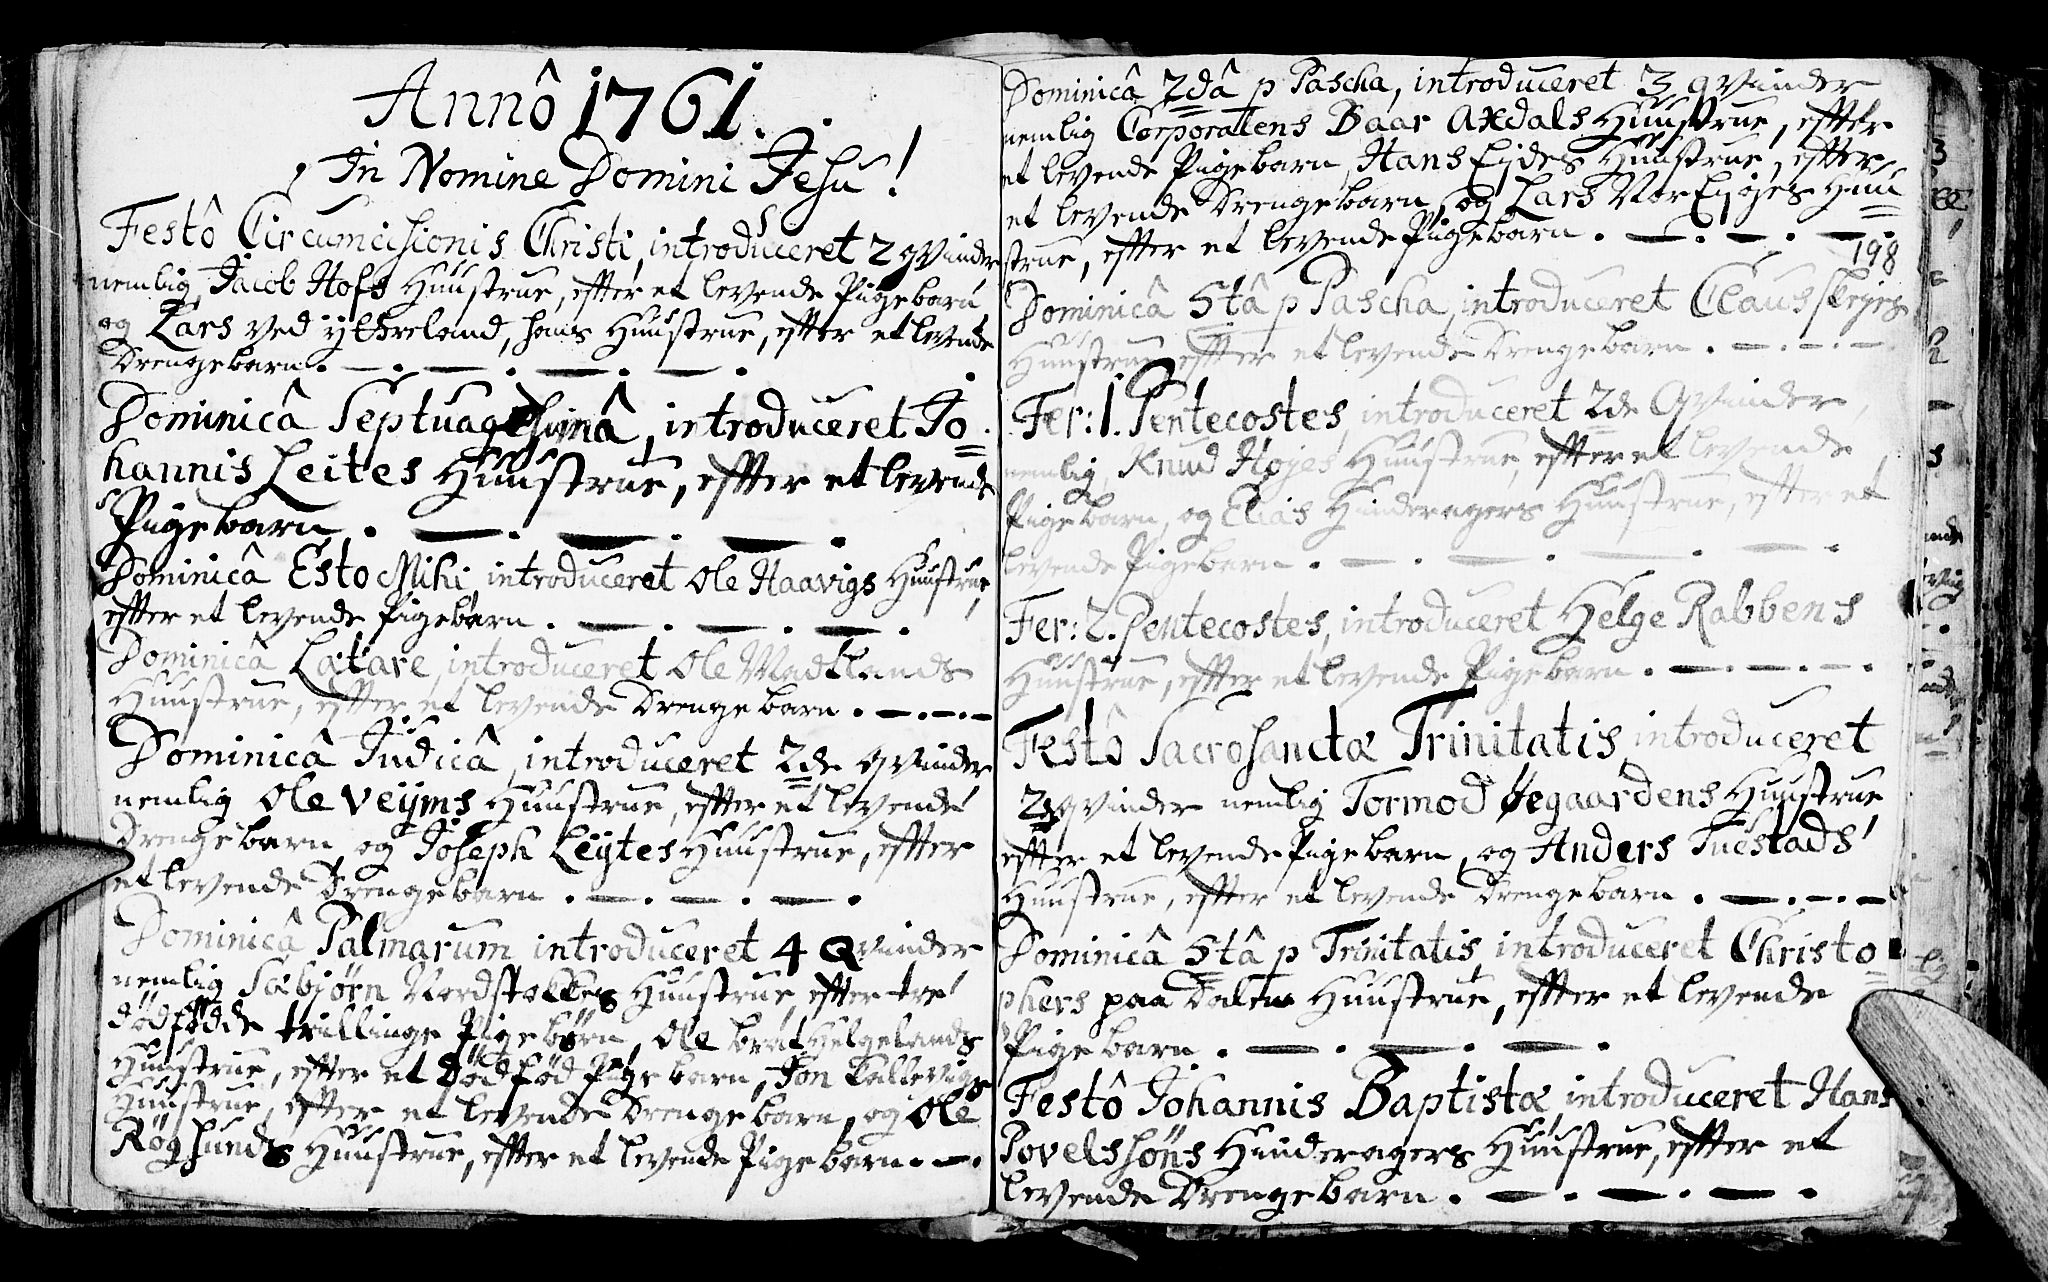 Annô 1761.
In Nomine Domini Jesu!
Festô Circumcisionis Christi, introduceret 2 qvinder
nemlig Jacob Hofs Huustrue, effter et levende Pigebarn
og Lars ved ythreland, hans Huustrue, effter et levende
Drengebarn. — . — . — . — .
Dominicâ Septuagesimâ, introduceret Jo=
hannis Leites Huustrue, effter et levende
Pigebarn . — . — . — .
Dominicâ Esto Mihi introduceret Ole Haavigs Huustrue,
effter et levende Pigebarn . — . — . — .
Dominicâ Lætare, introduceret Ole Madtlands
Huustrue, effter et levende Drengebarn . — . — . —
Dominicâ Judicâ, introduceret 2de qvinder
nemlig Ole Veijms Huustrue, effter et levende
Drengebarn og Joseph Leijtes Huustrue, effter
et levende Drengebarn . — . — . — .
Dominicâ Palmarum introduceret 4 Qvinder
nemlig Sæbjørn Nordstokkes Huustrue, effter tre
dödfödde trillinge Pigebørn, Ole Helgelands
Huustrue, effter et dödföd Pigebarn, Jon Tallevigs
Huustrue, effter et levende Drengebarn, og Ole
Rögsunds Huustrue, effter et levende Pigebarn . — .
Dominicâ 2dâ p Pascha, introduceret 3 qvinder
nemlig Corporalens Baar Axdals Huustrue, effter
et levende Pigebarn, Hans Eijdes Huustrue, effter
et levende Drengebarn, og Lars Huu=
strue, effter et levende Pigebarn . — . — . — .
198
Dominicâ 5tâ p Pascha, introduceret Claus
Huustrue effter et levende Drengebarn . — . — . —
Fer: 1. Pentecostes, introduceret 2de Qvinder,
nemlig, Knud Højes Huustrue, effter et levende
Pigebarn, og Elias Hinderagers Huustrue, effter et
levende Pigebarn . — . — . — . — .
Fer: 2. Pentecostes, introduceret Helge Rabbens
Huustrue, effter et levende Pigebarn . — . — . — .
Festô Sacrosanctæ Trinitatis introduceret
2de qvinder nemlig Tormod Øegaardens Huustrue
effter et levende Pigebarn, og Anders Tuestads
Huustrue, effter et levende Drengebarn . — . — . —
Dominicâ 5tâ p Trinitatis introduceret Christo=
phers paa Dalen Huustrue, effter et levende
Pigebarn . — . — . — .
Festô Johannis Baptistæ introduceret Hans
Povelssöns Hinderagers Huustrue, effter et
levende Drengebarn . — . — . — .